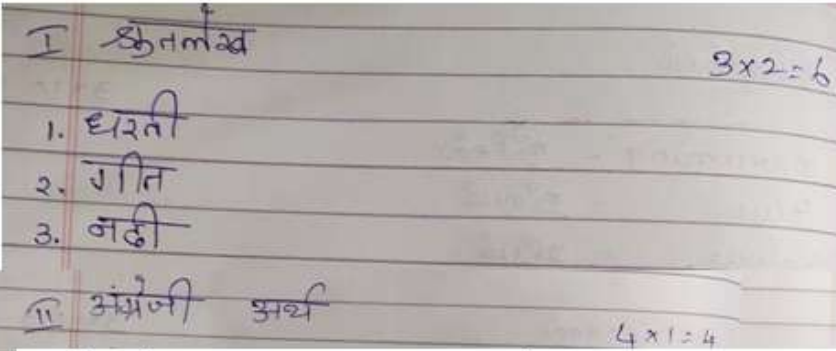 I श्रुतलेख
3x2=6
1. धरती
2. गीत
3. नदी
II अंग्रेजी अर्थ
4x1=4